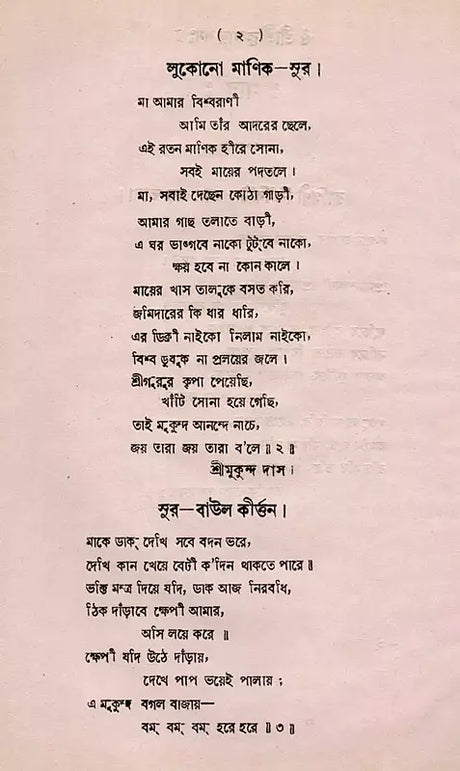 ( ২ )
লুকোনো মাণিক—সুর।
মা আমার বিশ্বরাণী
আমি তাঁর আদরের ছেলে,
এই রতন মাণিক হীরে সোনা,
সবই মায়ের পদতলে।
মা, সবাই দেছেন কোঠা গাড়ী,
আমার গাছ তলাতে বাড়ী,
এ ঘর ভাঙ্গবে নাকো টুট্‌বে নাকো,
ক্ষয় হবে না কোন কালে।
মায়ের খাস তালুকে বসত করি,
জমিদারের কি ধার ধারি,
এর ডিক্রী নাইকো নিলাম নাইকো,
বিশ্ব ডুবুক না প্রলয়ের জলে।
শ্রীগুরুর কৃপা পেয়েছি,
খাঁটি সোনা হয়ে গেছি,
তাই মুকুন্দ আনন্দে নাচে,
জয় তারা জয় তারা ব'লে॥ ২॥
শ্রীমুকুন্দ দাস।
সুর—বাউল কীর্ত্তন।
মাকে ডাক্ দেখি সবে বদন ভরে,
দেখি কান খেয়ে বেটী ক'দিন থাকতে পারে॥
ভক্তি মন্ত্র দিয়ে যদি, ডাক আজ নিরবধি,
ঠিক দাঁড়াবে ক্ষেপী আমার,
অসি লয়ে করে॥
ক্ষেপী যদি উঠে দাঁড়ায়,
দেখে পাপ ভয়েই পালায়;
এ মুকুন্দ বগল বাজায়—
বম্ বম্ বম্ হরে হরে॥ ৩॥